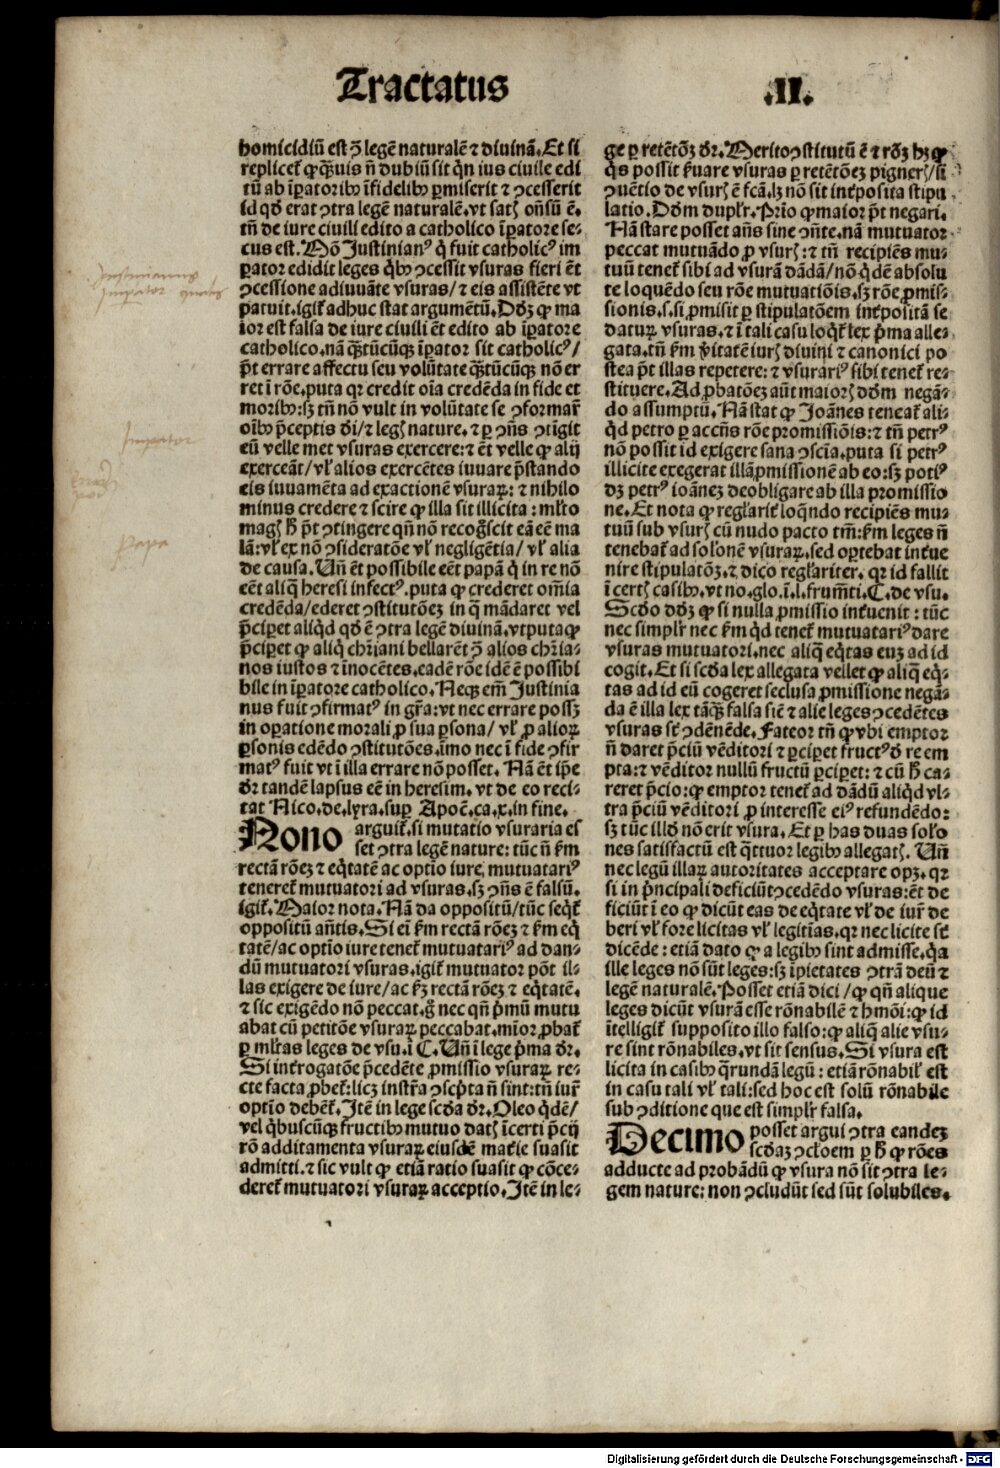 Tractatus
.II.
homicidiũ est ꝯ̃ legẽ naturalẽ ⁊ diuinã. Et si
replicet̃ ꝙ q̃ꝫuis ñ dubiũ sit q̃n ius ciuile edi
tũ ab ĩꝑatoribꝰ ĩfidelibꝰ ꝑmiserit ⁊ ꝯcesserit
id qd̃ erat ꝯtra legẽ naturalẽ. vt satꝭ oñsũ ẽ.
tñ de iure ciuili edito a catholico ĩꝑatore se⸗
cus est. Mõ Justinianꝰ q̃ fuit catholicꝰ im
ꝑator edidit leges q̃bꝰ ꝯcessit vsuras fieri ẽt
ꝯcessione adiuuãte vsuras/ ⁊ eis assistẽte vt
patuit. igit̃ adhuc stat argumẽtũ. Dd̃ꝫ ꝙ ma
ior est falsa de iure ciuili ẽt edito ab ĩꝑatore
catholico. nã q̃ꝫtũcũqꝫ ĩꝑator sit catholicꝰ/
p̃t errare affectu seu volũtate q̃ꝫtũcũqꝫ nõ er
ret ĩ rõe. puta qꝛ credit oĩa credẽda in fide et
moribꝰ: sꝫ tñ nõ vult in volũtate se ꝯformar̃
oĩbꝰ p̃ceptis d̃i/ ⁊ legꝭ nature. ⁊ ꝑ ꝯñs ꝯtĩgit
eũ velle met vsuras exercere: ⁊ ẽt velle ꝙ alij
exerceãt/ vl̃ alios exercẽtes iuuare p̃stando
eis iuuamẽta ad exactionẽ vsuraꝝ: ⁊ nihilo
minus credere ⁊ scire ꝙ illa sit illicita: ml̃to
magꝭ h̃ p̃t ꝯtingere qñ nõ recog̃scit eã eẽ ma
lã: vl̃ ex nõ ꝯsideratõe vl̃ negligẽtia/ vl̃ alia
de causa. Uñ ẽt possibile eẽt papã q̃ in re nõ
eẽt aliq̃ heresi infectꝰ. puta ꝙ crederet om̃ia
credẽda/ ederet ꝯstitutõeꝫ in q̃ mãdaret vel
p̃ciꝑet aliqd̃ qd̃ ẽ ꝯtra legẽ diuinã. vtputa ꝙ
p̃ciꝑet ꝙ aliq̃ chr̃iani bellarẽt ꝯ̃ alios chr̃ia⸗
nos iustos ⁊ ĩnocẽtes. eadẽ rõe idẽ ẽ possibi
bile in ĩꝑatore catholico. Neqꝫ em̃ Justinia
nus fuit ꝯfirmatꝰ in gr̃a: vt nec errare possꝫ
in oꝑatione morali ꝓ sua ꝑsona/ vl̃ ꝓ alioꝝ
ꝑsonis edẽdo ꝯstitutões. imo nec ĩ fide ꝯfir
matꝰ fuit vt ĩ illa errare nõ posset. Nã ẽt ip̃e
dr̃ tandẽ lapsus eẽ in heresim. vt de eo reci⸗
tat Nico. de. lyra. suꝑ Apoc̃. ca. x. in fine.
Nono arguit̃. si mutatio vsuraria es
set ꝯtra legẽ nature: tũc ñ ẽm
rectã rõeꝫ ⁊ eq̃tatẽ ac optio iure, mutuatariꝰ
teneret̃ mutuatori ad vsuras. sꝫ ꝯñs ẽ falsũ.
igit̃. Maior nota. Nã da oppositũ/ tũc seq̃t̃
oppositũ añtis. Si eĩ ẽm rectã rõeꝫ ⁊ ẽm eq̃
tatẽ/ ac optĩo iure tenet̃ mutuatariꝰ ad dan⸗
dũ mutuatori vsuras. igit̃ mutuator põt il⸗
las exigere de iure/ ac ẽm rectã rõeꝫ ⁊ eq̃tatẽ.
⁊ sic exigẽdo nõ peccat. g̃ nec qñ p̃mũ mutu
abat cũ petitõe vsuraꝝ peccabat. mĩor ꝓbat̃
ꝑ ml̃tas leges de vsu. ĩ C. Uñ ĩ lege p̃ma dr̃.
Si interrogatõe p̃cedẽte ꝓmissio vsuraꝝ re⸗
cte facta ꝓbet̃: licꝫ instr̃a ꝯscp̃ta ñ sint: tñ iur̃
optĩo debẽt̃. Itẽ in lege scd̃a dr̃. Oleo q̃dẽ/
vel q̃buscũqꝫ fructibꝰ mutuo datꝭ ĩcerti p̃cij
rõ additamenta vsuraꝝ eiusdẽ mat̃ie suasit
admitti. ⁊ sic vult ꝙ etiã ratio suasit ꝙ cõce⸗
deret̃ mutuatori vsuraꝝ acceptio. Itẽ in le⸗
ge ꝑ retẽtõꝫ dr̃. Merito ꝯstitutũ ẽ ⁊ rõꝫ hꝫ ꝙ
q̃s possit ẽuare vsuras ꝑ retẽtõeꝫ pignerꝭ/ si
ꝯuẽtio de vsurꝭ ẽ fcã. lꝫ nõ sit int̃posita stipu
latio. Dd̃m dupl̃r. Pr̃io ꝙ maior p̃t negari.
Nã stare posset añs sine ꝯñte. nã mutuator
peccat mutuãdo ꝓ vsurꝭ: ⁊ tñ recipiẽs mu⸗
tuũ tenet̃ sibi ad vsurã dãdã/ nõ q̃dẽ absolu
te loquẽdo seu rõe mutuatiõis. sꝫ rõe ꝓmis⸗
sionis. s. si ꝓmisit ꝑ stipulatõem int̃positã se
daturꝝ vsuras. ⁊ ĩ tali casu loq̃t̃ lex p̃ma alle⸗
gata. tñ ẽm ṽitatẽ iurꝭ diuini ⁊ canonici po
stea p̃t illas repetere: ⁊ vsurariꝰ sibi tenet̃ re⸗
stituere. Ad ꝓbatõeꝫ aũt maiorꝭ dd̃m negã⸗
do assumptũ. Nã stat ꝙ Joãnes teneat̃ ali⸗
q̃d petro ꝑ accñs rõe promissiõis: ⁊ tñ petrꝰ
nõ possit id exigere sana ꝯscĩa. puta si petrꝰ
illicite exegerat illã ꝓmissionẽ ab eo: sꝫ potiꝰ
dꝫ petrꝰ ioãneꝫ deobligare ab illa promissio
ne. Et nota ꝙ regl̃arit̃ loq̃ndo recipiẽs mu⸗
tuũ sub vsurꝭ cũ nudo pacto tm̃: ẽm leges ñ
tenebat̃ ad sol̃onẽ vsuraꝝ. sed optebat int̃ue
nire stipulatõꝫ. ⁊ dico regl̃ariter. qꝛ id fallit
ĩ certꝭ casibꝰ. vt no. glo. ĩ. l. frum̃ti. C. de vsu.
Scd̃o dd̃ꝫ ꝙ si nulla ꝓmissio int̃uenit: tũc
nec simpl̃r nec ẽm q̃d tenet̃ mutuatariꝰ dare
vsuras mutuatori. nec aliq̃ eq̃tas euꝫ ad id
cogit. Et si scd̃a lex allegata vellet ꝙ aliq̃ eq̃⸗
tas ad id eũ cogeret seclusa ꝓmissione negã⸗
da ẽ illa lex tãq̃ꝫ falsa sicut̃ ⁊ alie leges ꝯcedẽtes
vsuras st̃ ꝯdẽnẽde. Fateor tñ ꝙ vbi emptor
ñ daret p̃ciũ vẽditori ⁊ ꝑciꝑet fructꝰ d̃ re em
pta: ⁊ vẽditor nullũ fructũ ꝑciꝑet: ⁊ cũ h̃ ca⸗
reret p̃cio: ꝙ emptor tenet̃ ad dãdũ aliq̃d vl⸗
tra p̃ciũ vẽditori ꝓ interesse eiꝰ refundẽdo:
sꝫ tũc illd̃ nõ erit vsura. Et ꝑ has duas sol̃o
nes satisfactũ est q̃ttuor legibꝰ allegatꝭ. Uñ
nec legũ illaꝝ autoritates acceptare opꝫ. qꝛ
si in p̃ncipali deficiũt ꝯcedẽdo vsuras: ẽt de
ficiũt ĩ eo ꝙ dicũt eas de eq̃tate vl̃ de iur̃ de
beri vl̃ fore licitas vl̃ legitĩas. qꝛ nec licite st̃
dicẽde: etiã dato ꝙ a legibꝰ sint admisse. q̃a
ille leges nõ sũt leges: sꝫ ĩpietates ꝯtrã deũ ⁊
legẽ naturalẽ. Posset etiã dici/ ꝙ qñ alique
leges dicũt vsurã esse rõnabilẽ ⁊ hm̃õi: ꝙ id
ĩtelligit̃ supposito illo falso: ꝙ aliq̃ alie vsu⸗
re sint rõnabiles. vt sit sensus. Si vsura est
licita in casibꝰ q̃rundã legũ: etiã rõnabil̃ est
in casu tali vl̃ tali: sed hoc est solũ rõnabile
sub ꝯditione que est simpl̃r falsa.
Decimo posset argui ꝯtra eandeꝫ
scd̃aꝫ ꝯcl̃oem ꝑ h̃ ꝙ rões
adducte ad probãdũ ꝙ vsura nõ sit ꝯtra le⸗
gem nature: non ꝯcludũt sed sũt solubiles.
Justinianus
Imperator
Imperator
Papa
Digitalisierung gefördert durch die Deutsche Forschungsgemeinschaft - DFG